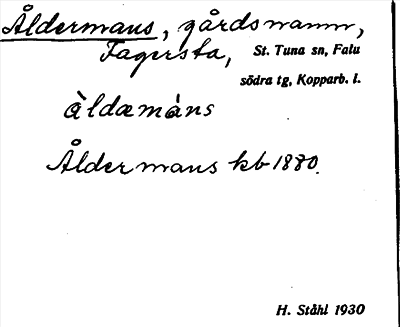 Åldermans, gårdsnamn,
Fagersta, St. Tuna sn, Falu
södra tg, Kopparb. l.
àldæmàns
Åldermans kb 1880.
H. Ståhl 1930